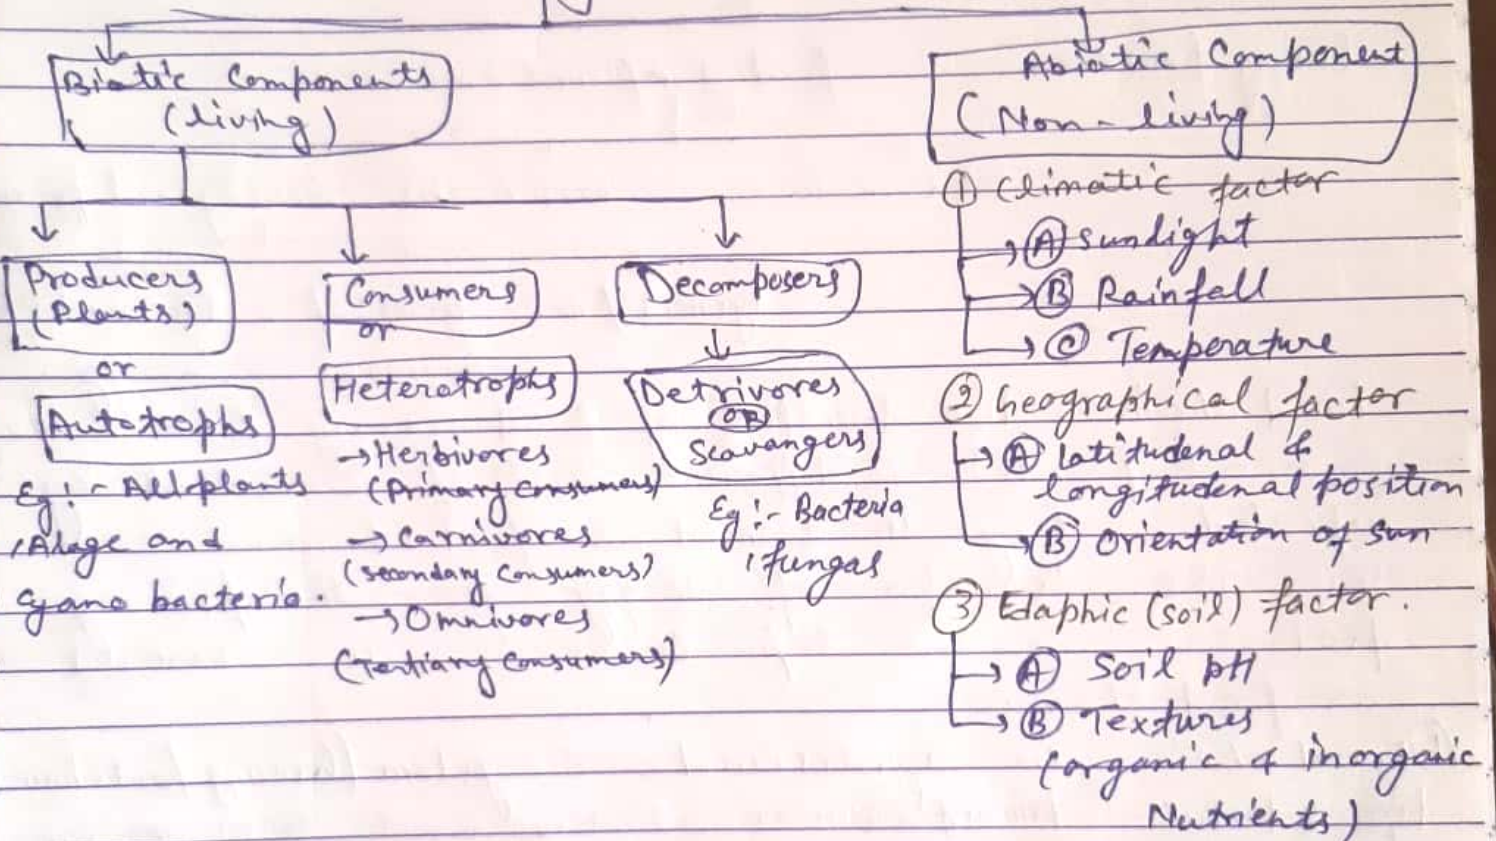 Biotic Components
(living)
Producers
(Plants)
or
Autotrophs
Eg:- All plants
, Alage and
cyano bacteria.
Consumers
or
Heterotrophs
→ Herbivores
(Primary consumers)
→ Carnivores
(secondary consumers)
→ Omnivores
(Tertiary consumers)
Decomposers
Detrivores
OR
Scavangers
Eg:- Bacteria
, fungas
Abiotic Component
(Non-living)
① Climatic factor
→ Ⓐ Sundight
→ Ⓑ Rainfall
→ Ⓒ Temperature
② Geographical factor
→ Ⓐ Latitudenal &
longitudenal position
→ Ⓑ Orientation of sun
③ Edaphic (soil) factor.
→ Ⓐ Soil pH
→ Ⓑ Textures
(organic & inorganic
Nutrients)